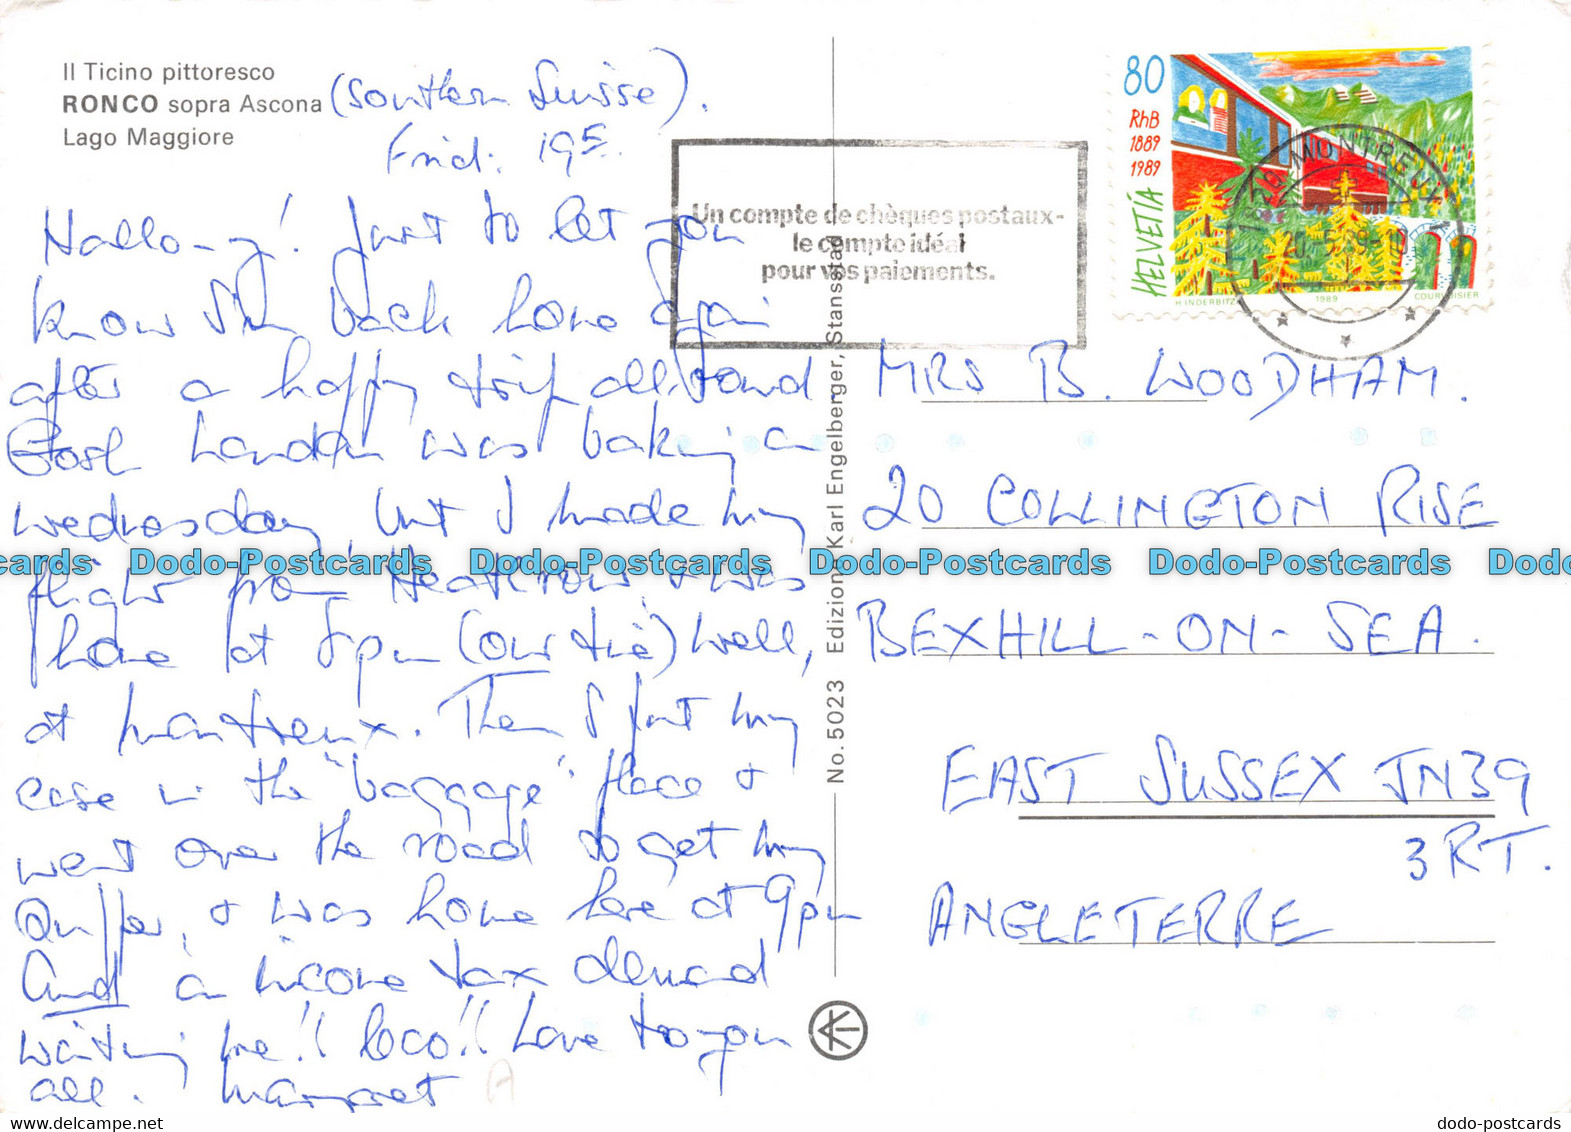 Il Ticino pittoresco
RONCO sopra Ascona (Southern Suisse).
Lago Maggiore
Frid: 19
Hallo-y! Just to let you
know I'm back home again
after a happy trip all round.
London was baking on
Wednesday, but I made my
flight from Heathrow & was
home at 8pm (our time) well,
at Montreux. Then I put my
case in the "baggage" place &
went over the road to get my
Supper, & was home here at 9pm
And an income tax demand
waiting me!! Love to you
all. Margaret
A
80
RhB
1889
1989
HELVETIA
H INDERBITZ
1989
COURVOISIER
MONTREUX
Un compte de chèques postaux-
le compte idéal
pour vos paiements.
No. 5023 Edizione Karl Engelberger, Stansstad
MRS B. WOODHAM.
20 COLLINGTON RISE
BEXHILL-ON-SEA.
EAST SUSSEX TN39
3RT.
ANGLETERRE
cards Dodo-Postcards Dodo-Postcards Dodo-Postcards Dodo-Postcards Dodo
www.delcampe.net
dodo-postcards